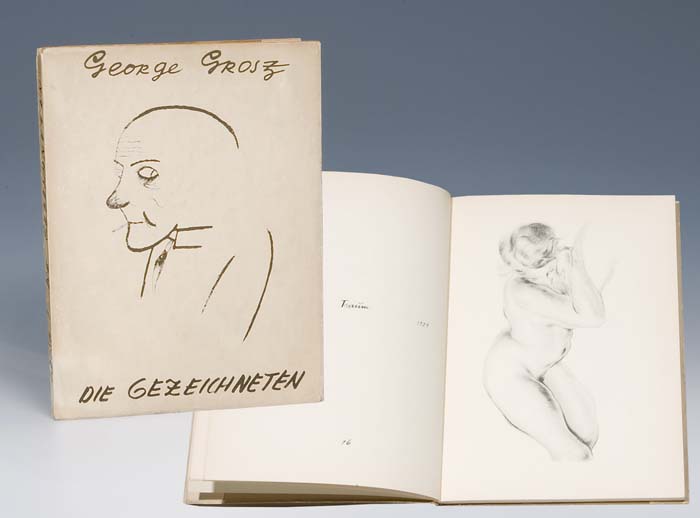 George Grosz
DIE GEZEICHNETEN
1929
16